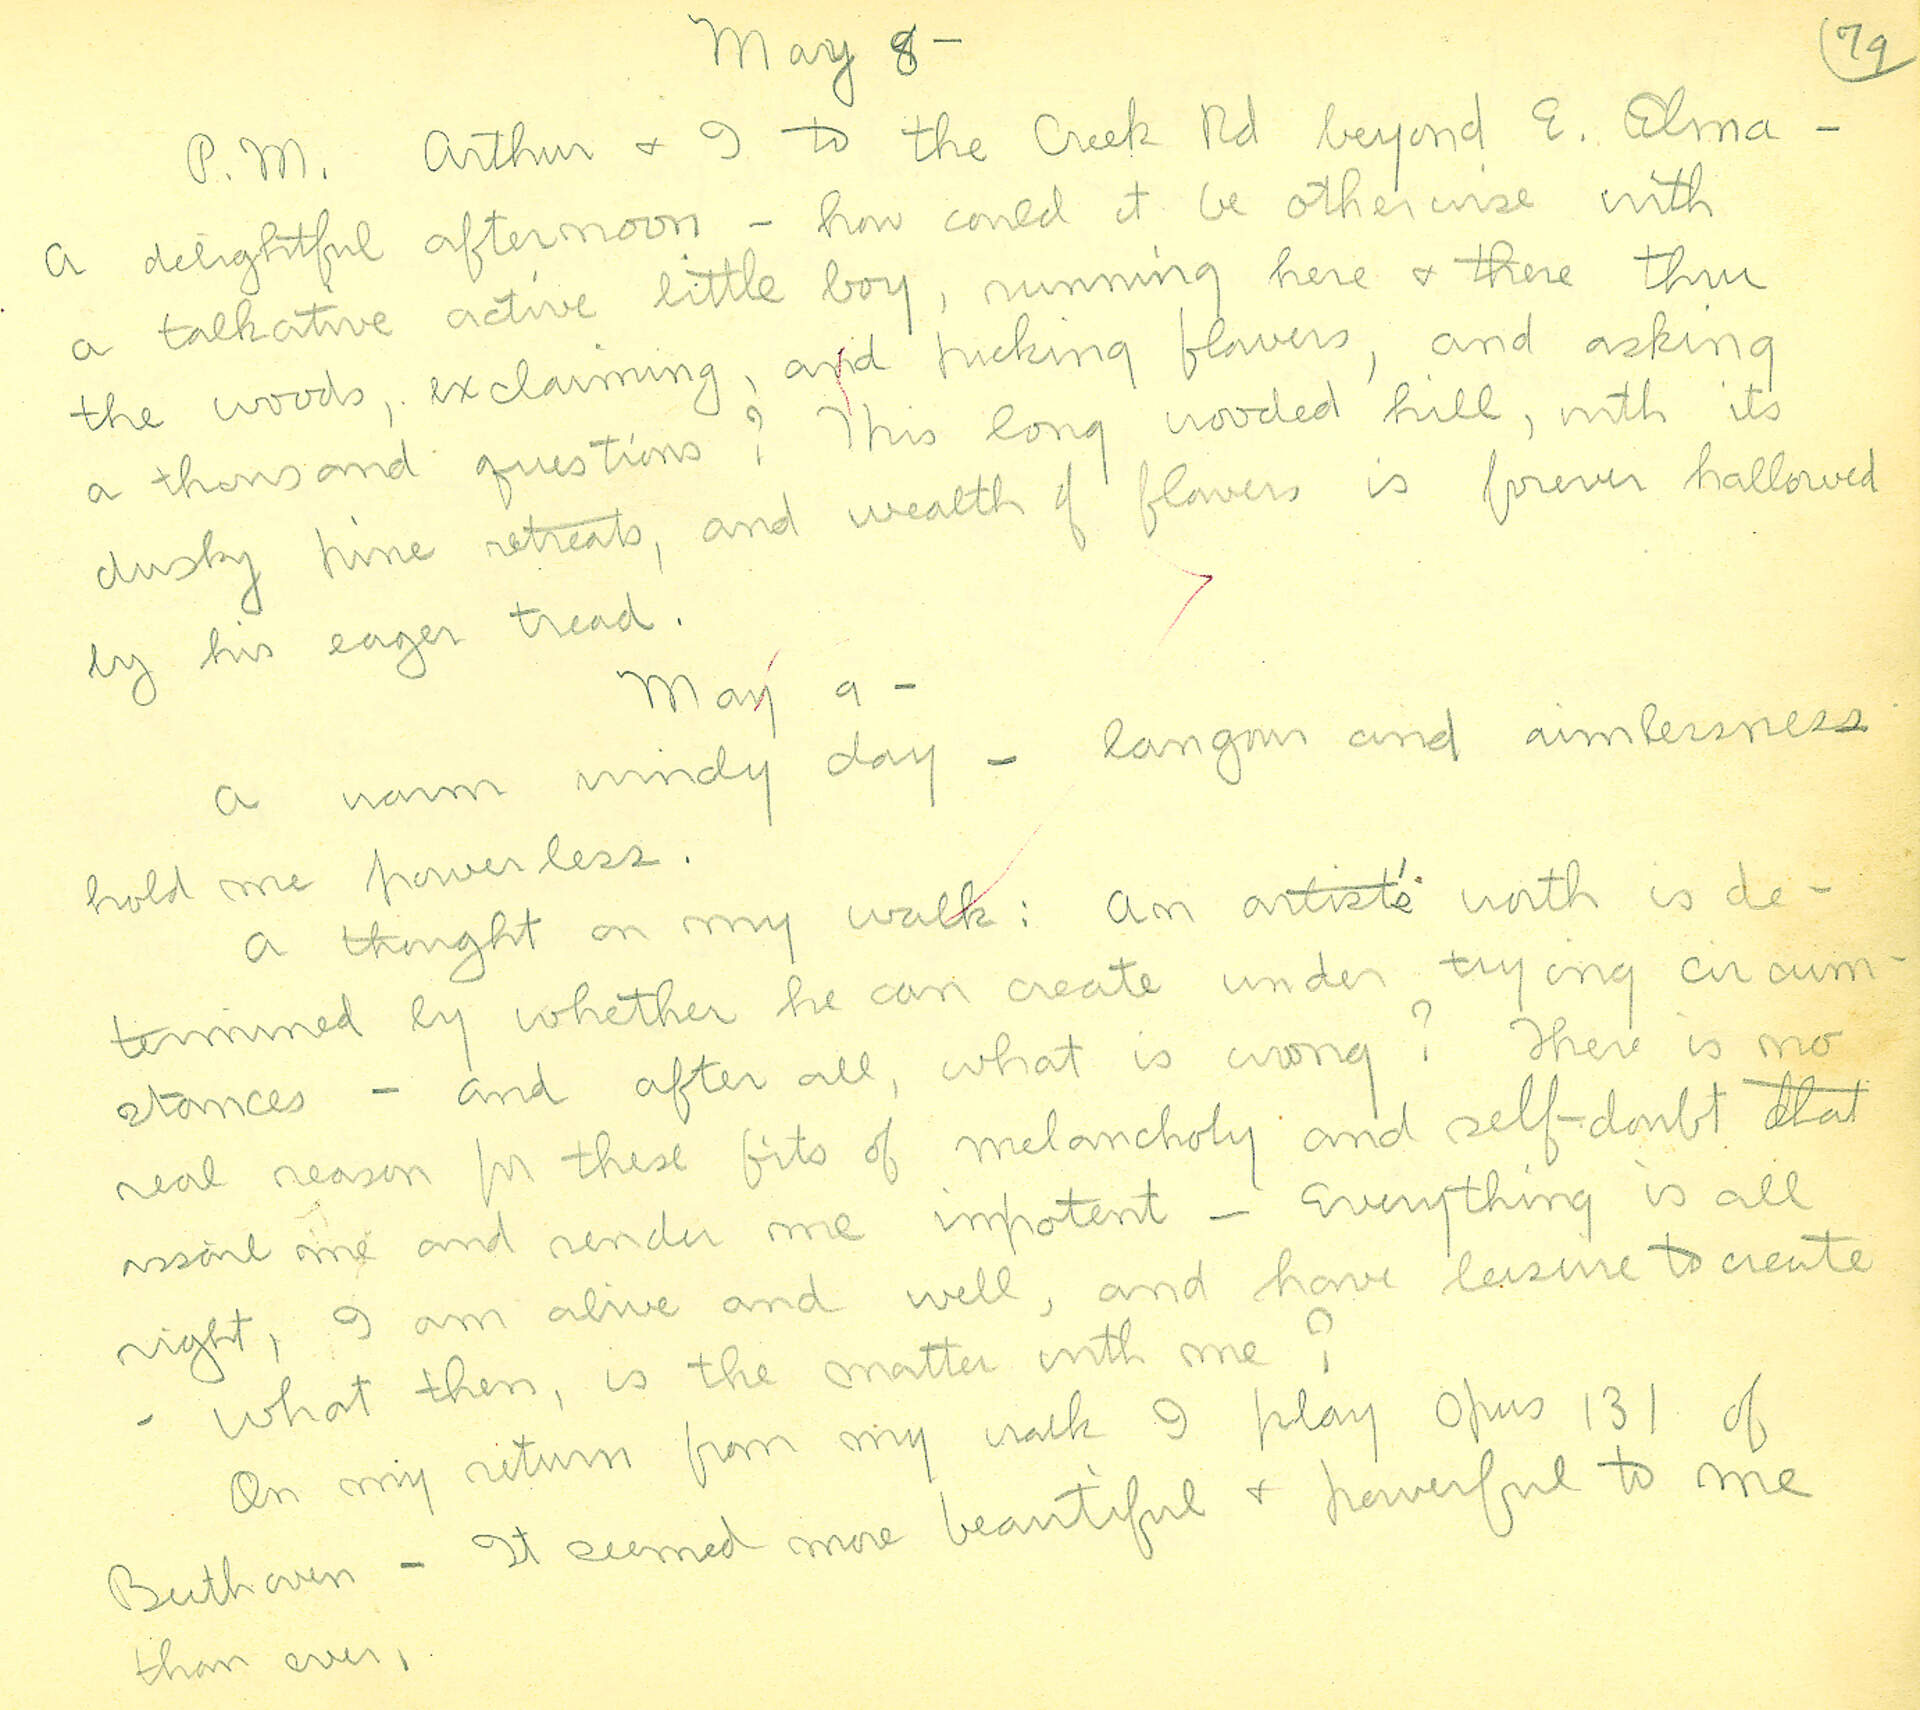 May 8 -
79
P.M. Arthur & I to the Creek Rd beyond E. Elma -
A delightful afternoon - how could it be otherwise with
a talkative active little boy, running here & there thru
the woods, exclaiming, and picking flowers, and asking
a thousand questions? This long wooded hill, with its
dusky pine retreats, and wealth of flowers is forever hallowed
by his eager tread.
May 9 -
A warm windy day - langour and aimlessness
hold me powerless.
A thought on my walk: An artist's worth is de-
termined by whether he can create under trying circum-
stances - and after all, what is wrong? There is no
real reason for these fits of melancholy and self-doubt that
assail me and render me impotent - Everything is all
right, I am alive and well, and have leisure to create
- What then, is the matter with me?
On my return from my walk I play Opus 131 of
Beethoven - It seemed more beautiful & powerful to me
than ever.